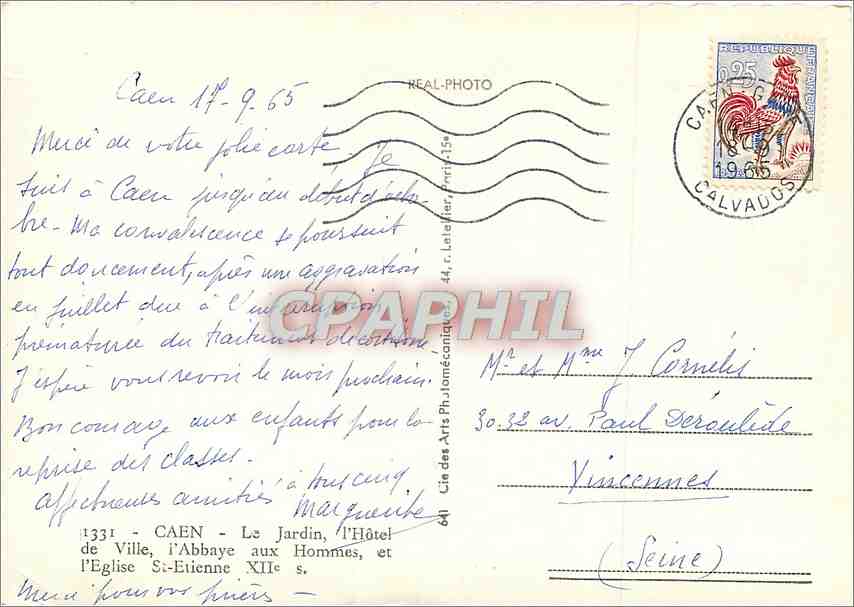 Caen 17-9-65
Merci de votre jolie carte. Je
suis à Caen jusqu'au début d'octo-
bre - Ma convalescence se poursuit
tout doucement, après une aggravation
en juillet due à l'interruption
prématurée du traitement de cortisone
J'espère vous revoir le mois prochain.
Bon courage aux enfants pour la
reprise des classes.
affectueuses amitiés à tous cinq
Marguerite
1331 - CAEN - Le Jardin, l'Hôtel
de Ville, l'Abbaye aux Hommes, et
l'Eglise St-Etienne XIIe s.
Merci pour vos prières -
REAL-PHOTO
641 Cie des Arts Photomécaniques, 44, r. Letellier, Paris-15e
REPUBLIQUE FRANCAISE
0,25
CAEN
1965
CALVADOS
CPAPHIL
Mr et Mme J Cornélis
30.32 av. Paul Déroulède
Vincennes
(Seine)